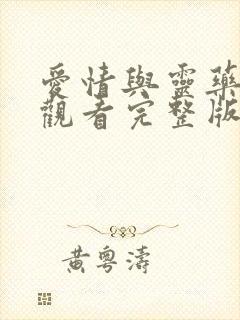 愛情與靈藥
觀看完整版
黃粵濤